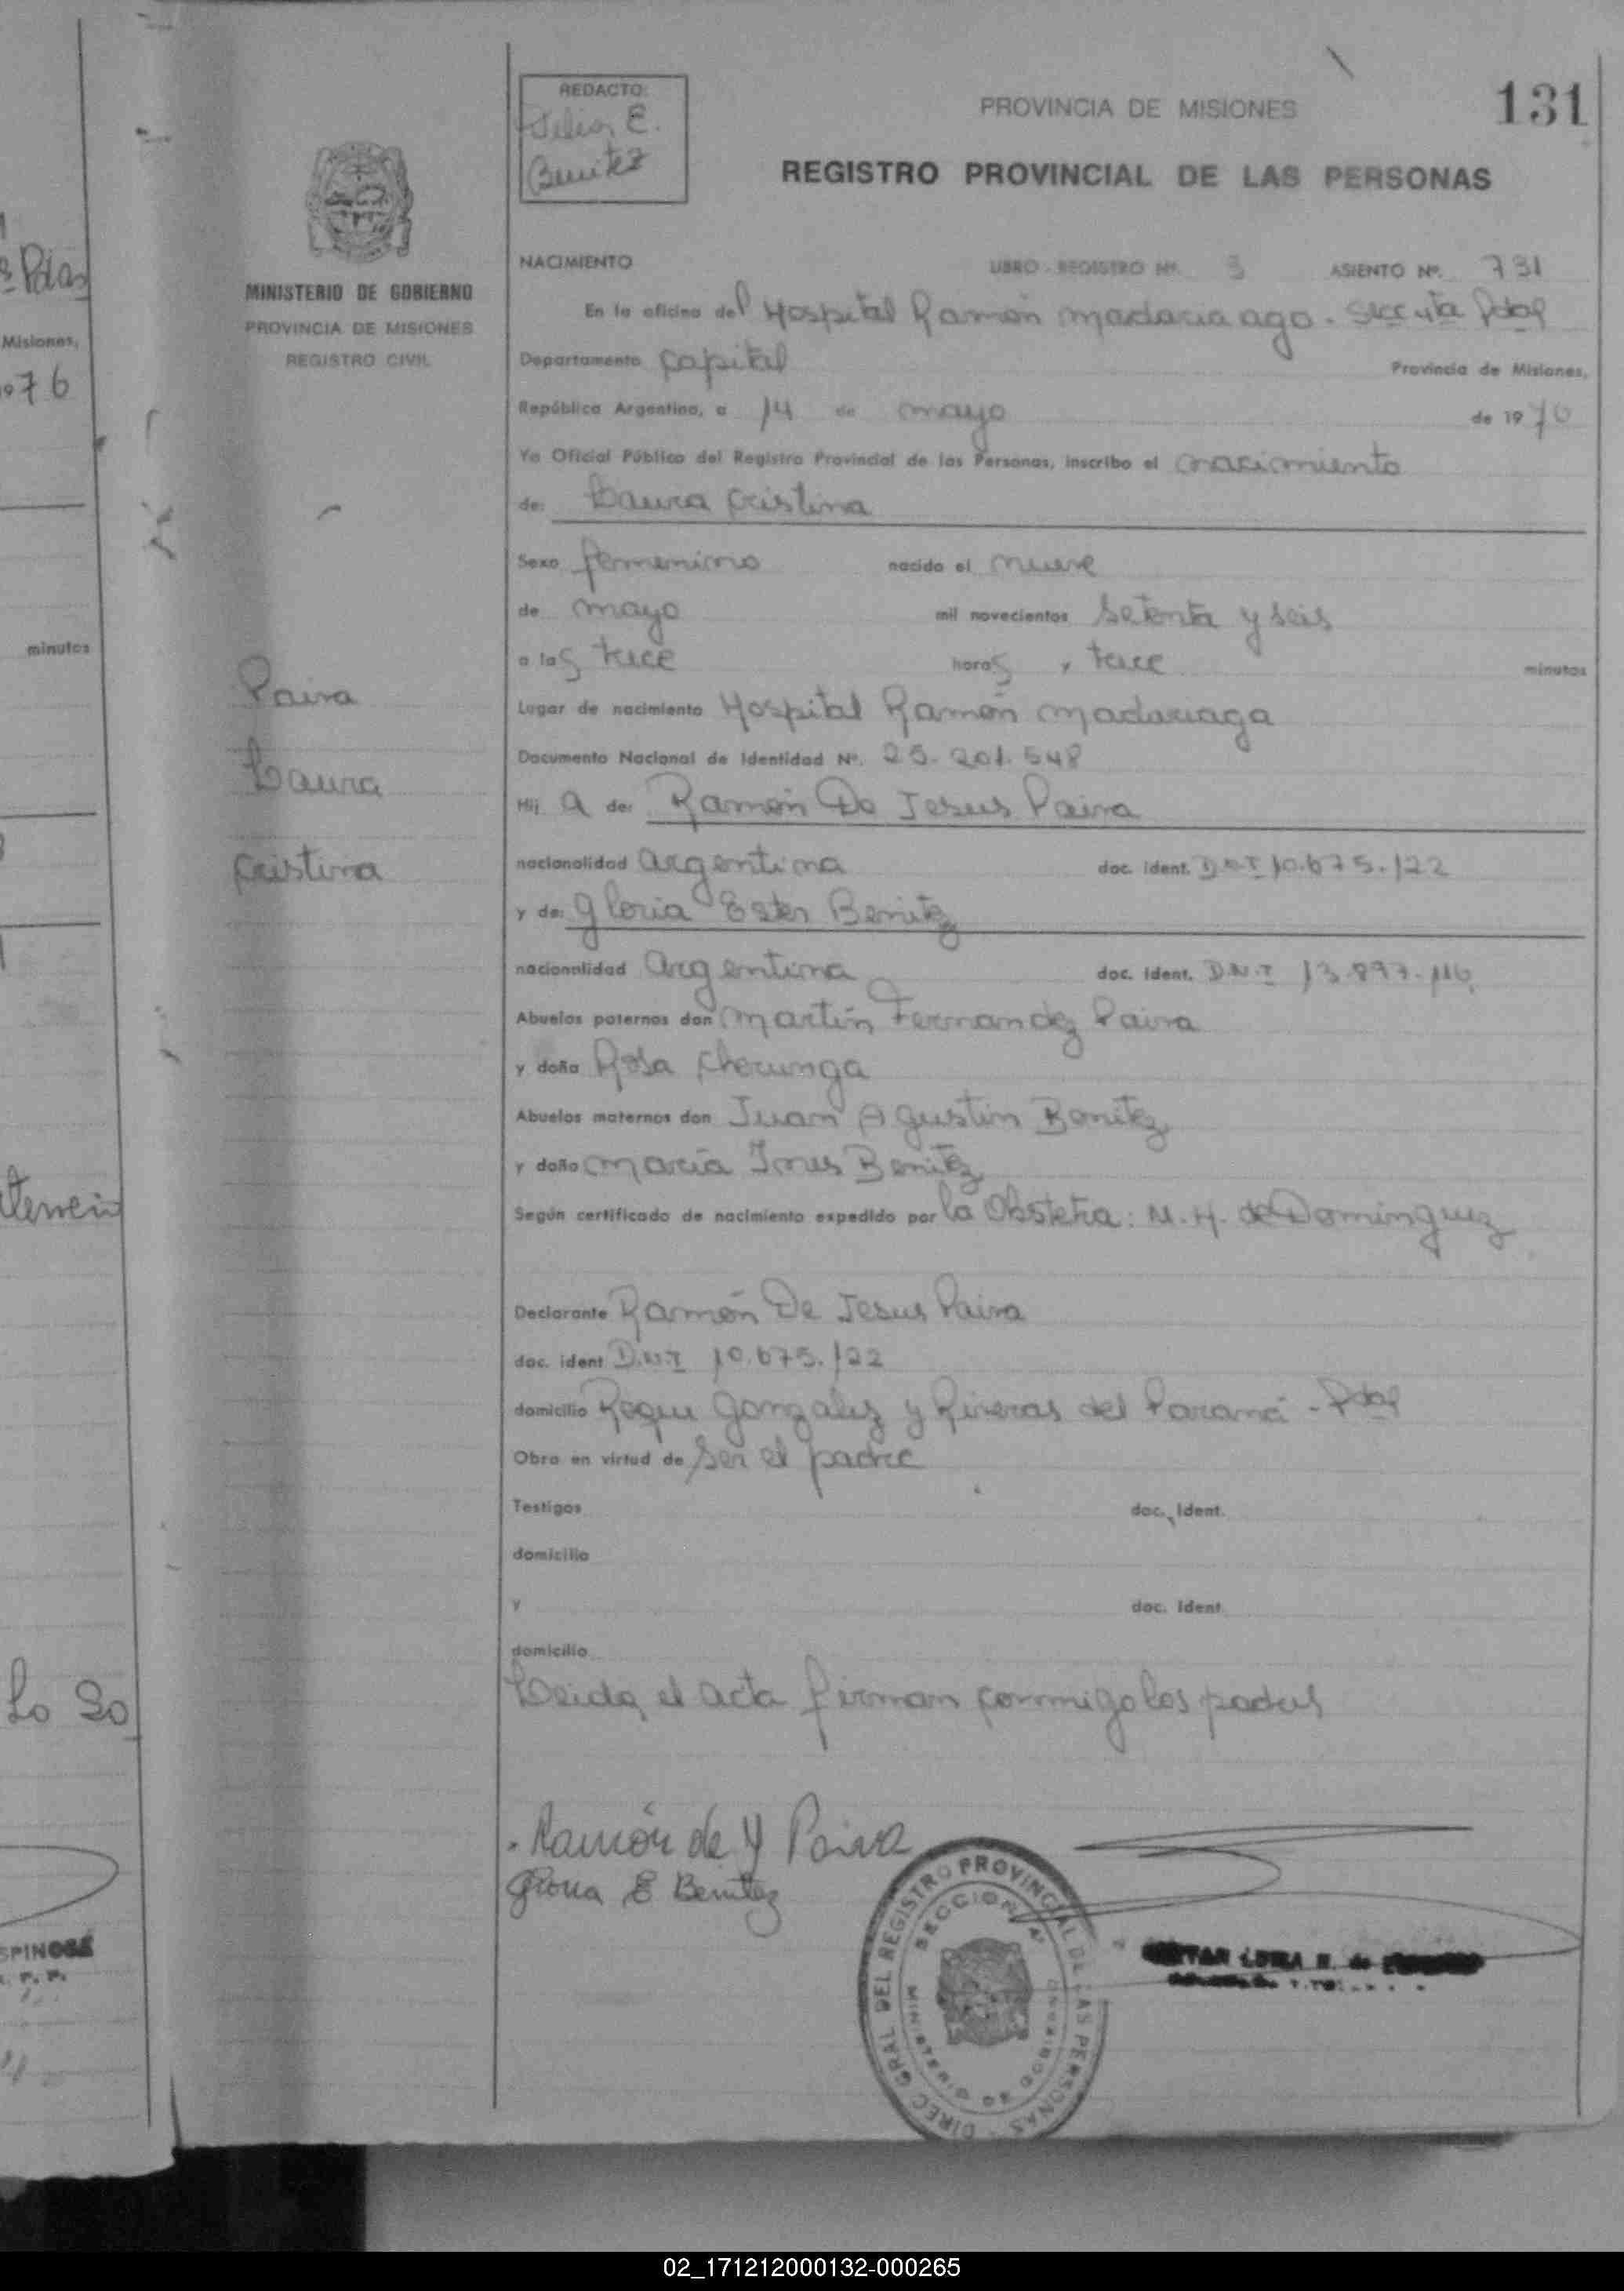 131
REDACTO:
E.
Benitez
PROVINCIA DE MISIONES
REGISTRO PROVINCIAL DE LAS PERSONAS
MINISTERIO DE GOBIERNO
PROVINCIA DE MISIONES
REGISTRO CIVIL
Paiva
Laura
Cristina
NACIMIENTO LIBRO - REGISTRO Nº. 3 ASIENTO Nº. 731
En la oficina del Hospital Ramón Madariaago - Secc 4ta Pdas
Departamento Capital Provincia de Misiones,
República Argentina, a 14 de mayo de 1976
Yo Oficial Público del Registro Provincial de las Personas, inscribo el nacimiento
de: Laura Cristina
Sexo femenino nacido el nueve
de mayo mil novecientos setenta y seis
a las trece horas y trece minutos
Lugar de nacimiento Hospital Ramón Madariaga
Documento Nacional de Identidad Nº. 25.201.548
Hij a de: Ramón De Jesus Paiva
nacionalidad argentina doc. ident. D.N.I 10.675.122
y de: Gloria Ester Benitez
nacionalidad argentina doc. ident. D.N.I 13.897.116
Abuelos paternos don Martín Fernandez Paiva
y doña Rosa Cherunga
Abuelos maternos don Juan Agustin Benitez
y doña María Ines Benitez
Según certificado de nacimiento expedido por la Obstetra: N. H. de Dominguez
Declarante Ramón De Jesus Paiva
doc. ident D.N.I 10.675.122
domicilio Roque Gonzalez y Riveras del Paraná - Pdas
Obra en virtud de ser el padre
Testigos doc. ident.
domicilio
y doc. ident.
domicilio
Leida el acta firman conmigo los padres
Ramón de J Paiva
Gloria E Benitez
DIREC GRAL DEL REGISTRO PROVINCIAL DE LAS PERSONAS
SECCION 4ª
MINISTERIO DE GOBIERNO
Pdas
Misiones,
1976
minutos
Lo So
SPINOSA
02_171212000132-000265